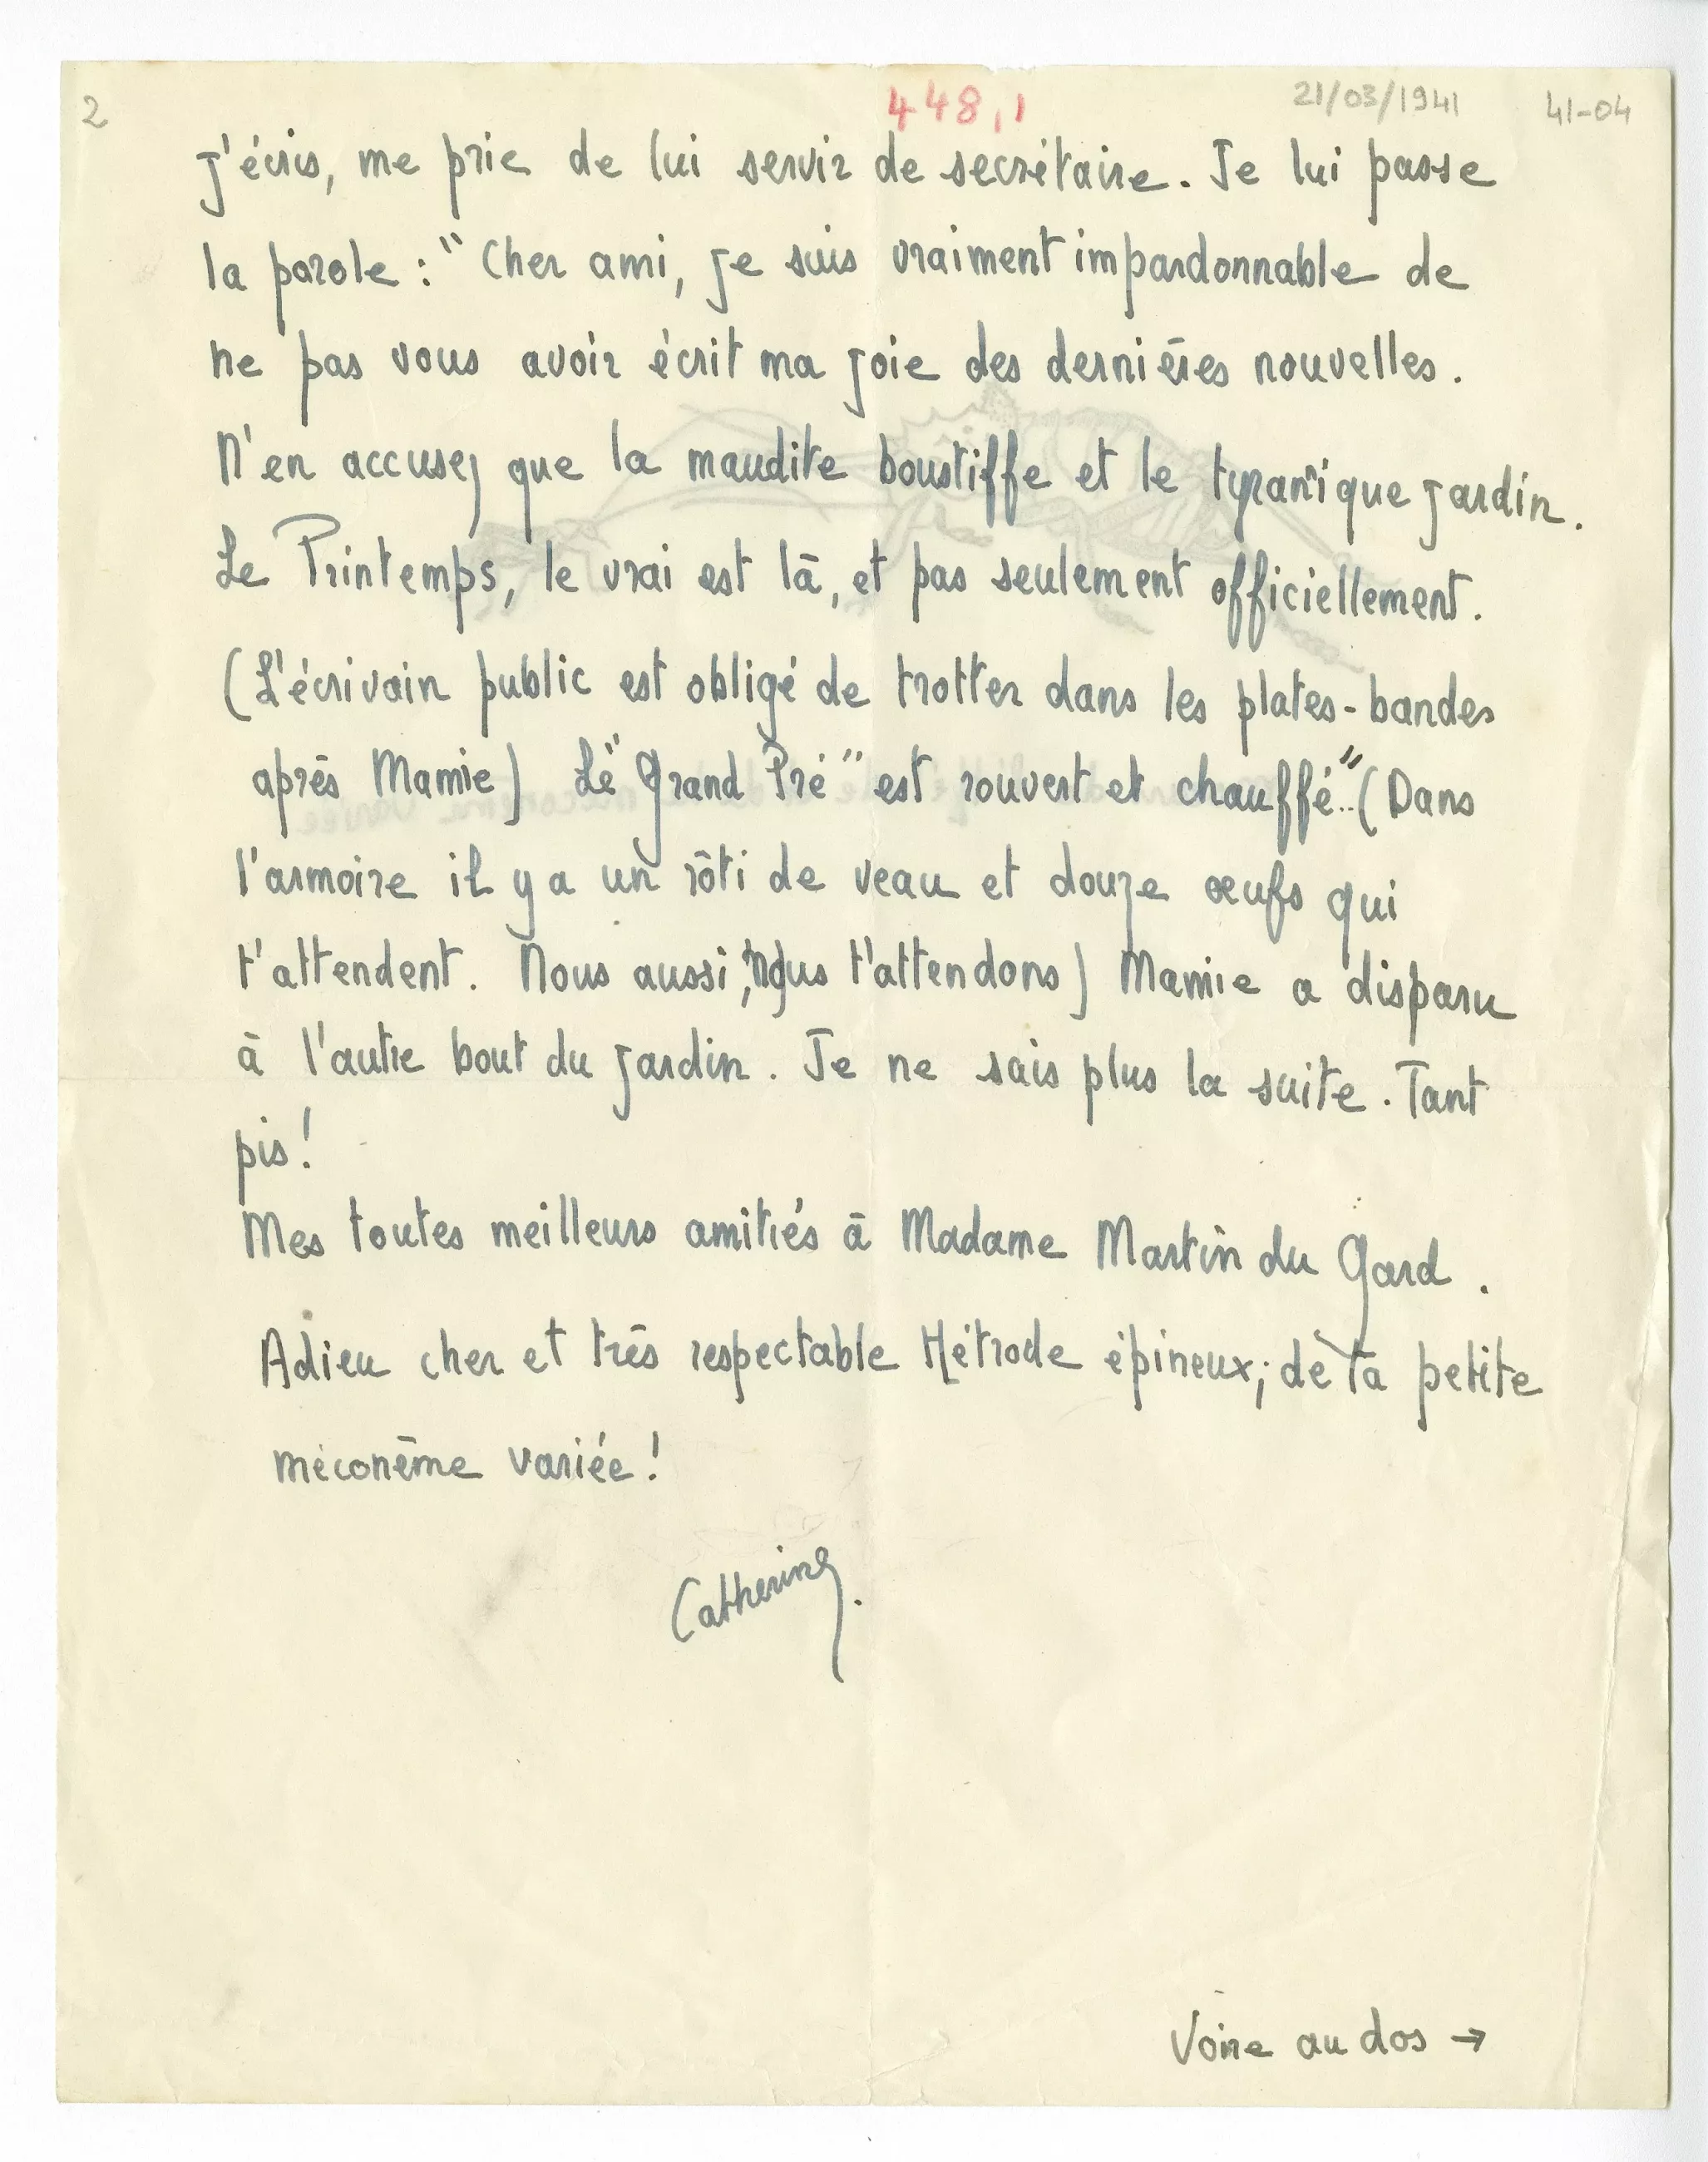 2
448,1
21/03/1941
41-04
j'écris, me prie de lui servir de secrétaire. Je lui passe
la parole : " Cher ami, je suis vraiment impardonnable de
ne pas vous avoir écrit ma joie des dernières nouvelles.
N'en accusez que la maudite boustiffe et le tyranique jardin.
Le Printemps, le vrai est là, et pas seulement officiellement.
(L'écrivain public est obligé de trotter dans les plates-bandes
après Mamie) Le "Grand Pré" est rouvert et chauffé.." (Dans
l'armoire il y a un rôti de veau et douze œufs qui
t'attendent. Nous aussi, nous t'attendons) Mamie a disparu
à l'autre bout du jardin. Je ne sais plus la suite. Tant
pis!
Mes toutes meilleurs amitiés à Madame Martin du Gard.
Adieu cher et très respectable Hétrode épineux; de ta petite
méconème variée!
Catherine.
Voire au dos →